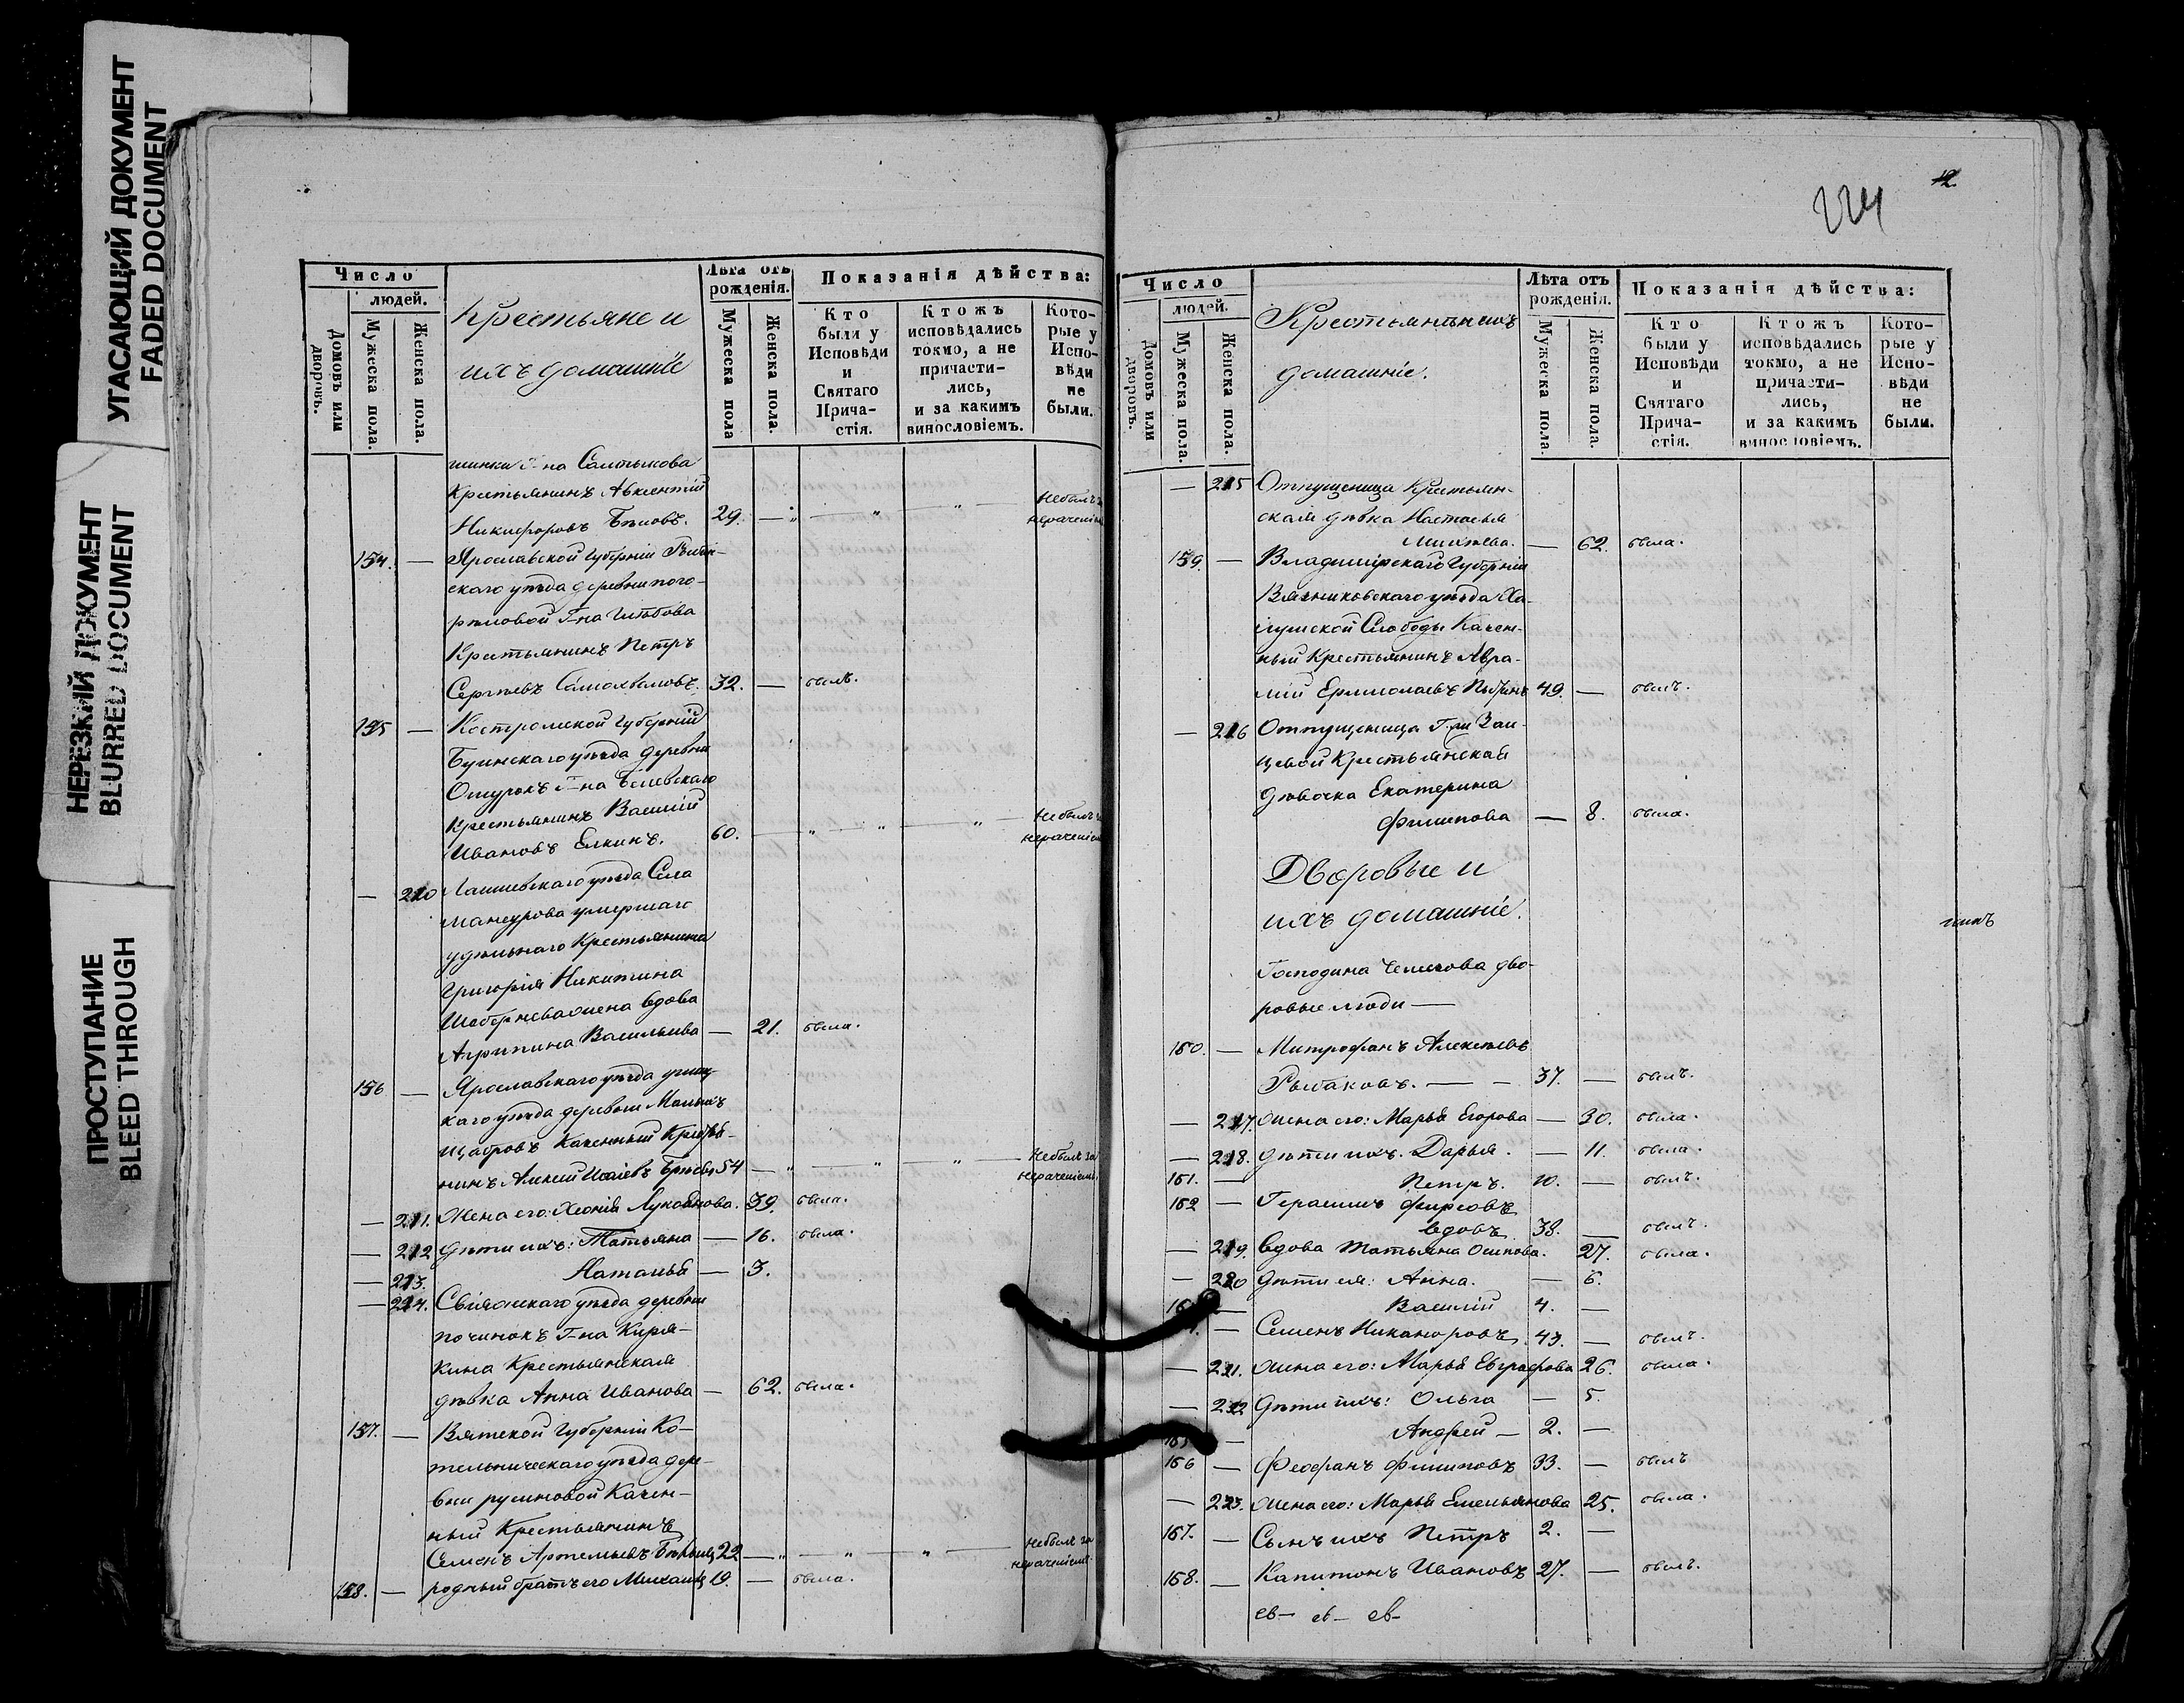 УГАСАЮЩИЙ ДОКУМЕНТ
FADED DOCUMENT
НЕРЕЗКИЙ ДОКУМЕНТ
BLURRED DOCUMENT
ПРОСТУПАНИЕ
BLEED THROUGH
Число
людей.
Домовъ или дворовъ.
Мужеска пола.
Женска пола.
Крестьяне и
ихъ домашніе
Лѣта отъ рожденія.
Мужеска пола
Женска пола.
Показанія дѣйства:
Кто были у Исповѣди и Святаго Причастія.
Ктожъ исповѣдались токмо, а не причастились, и за какимъ винословіемъ.
Которые у Исповѣди не были.
Г-на Салтыкова
Крестьянинъ Авксентій
Никифоровъ Бѣловъ. 29. — Небылъ за нераченіемъ
154. — Ярославской Губерніи Рыбин-
скаго уѣзда деревни Пого-
рѣловой Г-на Глѣбова
Крестьянинъ Петръ
Сергѣевъ Самохваловъ. 32. — былъ.
155 — Костромской Губерніи
Буинскаго уѣзда деревни
Г-на
Крестьянинъ Василій
Ивановъ Елкинъ. 60. — Небылъ за нераченіемъ
— 210 Лаишевскаго уѣзда Села
Мансурова умершаго
удѣльнаго Крестьянина
Григорія Никитина
жена вдова
Агрипина Васильева — 21. была.
156 — Ярославскаго уѣзда
каго уѣзда деревни
Казенный Крестья-
нинъ Алексій 54 — Небылъ за нераченіемъ
— 211. Жена его: Хеонія Лукоянова. 39. была.
— 212 Дѣти ихъ: Татьяна — 16. была.
— 213. Наталья — 3.
— 214. Свіяжскаго уѣзда деревни
Починокъ Г-на Киря-
кина Крестьянская
дѣвка Анна Иванова — 62. была.
157. — Вятской Губерніи Ко-
тельническаго уѣзда дере-
вни русиновой Казен-
ный Крестьянинъ
Семенъ Артемьевъ 22 — Небылъ за нераченіемъ
158. — родный братъ его Михаилъ 19. — была.
224
12.
Число
людей.
Домовъ или дворовъ.
Мужеска пола.
Женска пола.
Крестьяне и ихъ
домашніе.
Лѣта отъ рожденія.
Мужеска пола
Женска пола.
Показанія дѣйства:
Кто были у Исповѣди и Святаго Причастія.
Ктожъ исповѣдались токмо, а не причастились, и за какимъ винословіемъ.
Которые у Исповѣди не были.
— 215 Отпущеница Крестьян-
ская дѣвка Настасья
— 62. была.
159. — Владимірскаго Губерніи
Вязниковскаго уѣзда Хо-
луйской Слободы Казен-
ный Крестьянинъ Авра-
мій Ермолаевъ 49. — былъ.
— 216 Отпущеница Г-жи Заи-
цевой Крестьянская
дѣвочка Екатерина
Филипова — 8. была.
Дворовые и
ихъ домашніе.
Господина дво-
ровые люди —
160. — Митрофанъ Алексѣевъ
Рыбаковъ. — — 37. — былъ.
— 217. Жена его: Марья Егорова — 30. была.
— 218. Дѣти ихъ. Дарья. — 11. была.
161. — Петръ. 10. — былъ.
162 — Герасимъ Фирсовъ
вдовъ 38. — былъ.
— 219. Вдова Татьяна Осипова. 27. была.
— 220 Дѣти ея: Анна. — 6.
— Василій 4. —
— Семенъ Никаноровъ 43. — былъ.
— 221. Жена его: Марья Евграфова 26. была.
— 222 Дѣти ихъ: Ольга — 5.
165 — Андрей — 2. —
166 — Феофанъ Филиповъ 33. — былъ
— 223. Жена его: Марья Емельянова 25. была.
167. — Сынъ ихъ Петръ 2. —
168. — Капитонъ Ивановъ 27. — былъ.
никъ